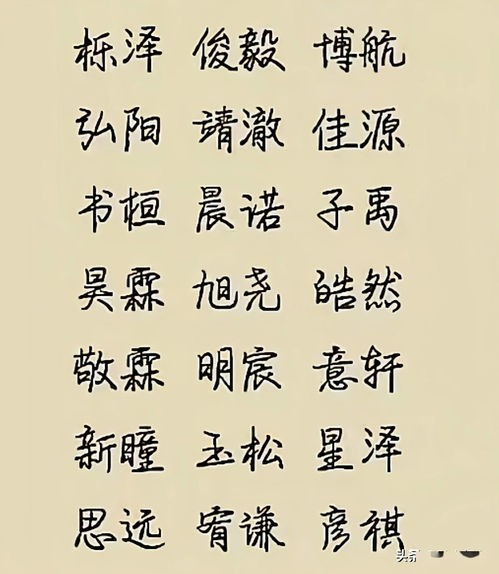 栎泽 俊毅 博航
弘阳 靖澈 佳源
书桓 晨诺 子禹
昊霖 旭尧 皓然
敬霖 明宸 意轩
新瞳 玉松 星泽
思远 宥谦 彦祺
头条